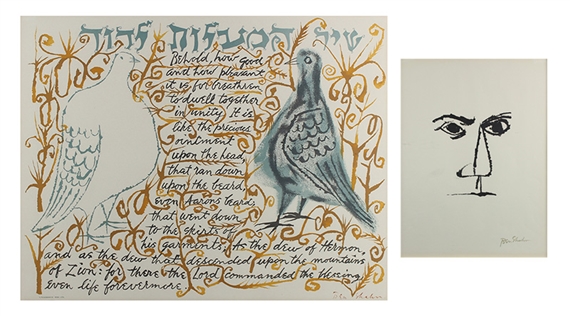 שיר המעלות לדוד
Behold, how good
and how pleasant
it is for breathren
to dwell together
in unity. it is
like the precious
ointment
upon the head,
that ran down
upon the beard,
even Aarons beard,
that went down
to the skirts of
his garments; As the dew of Hermon,
and as the dew that descended upon the mountains
of Zion: for there the Lord Commanded the blessing,
even life forevermore.
Ben Shahn
Ben Shahn